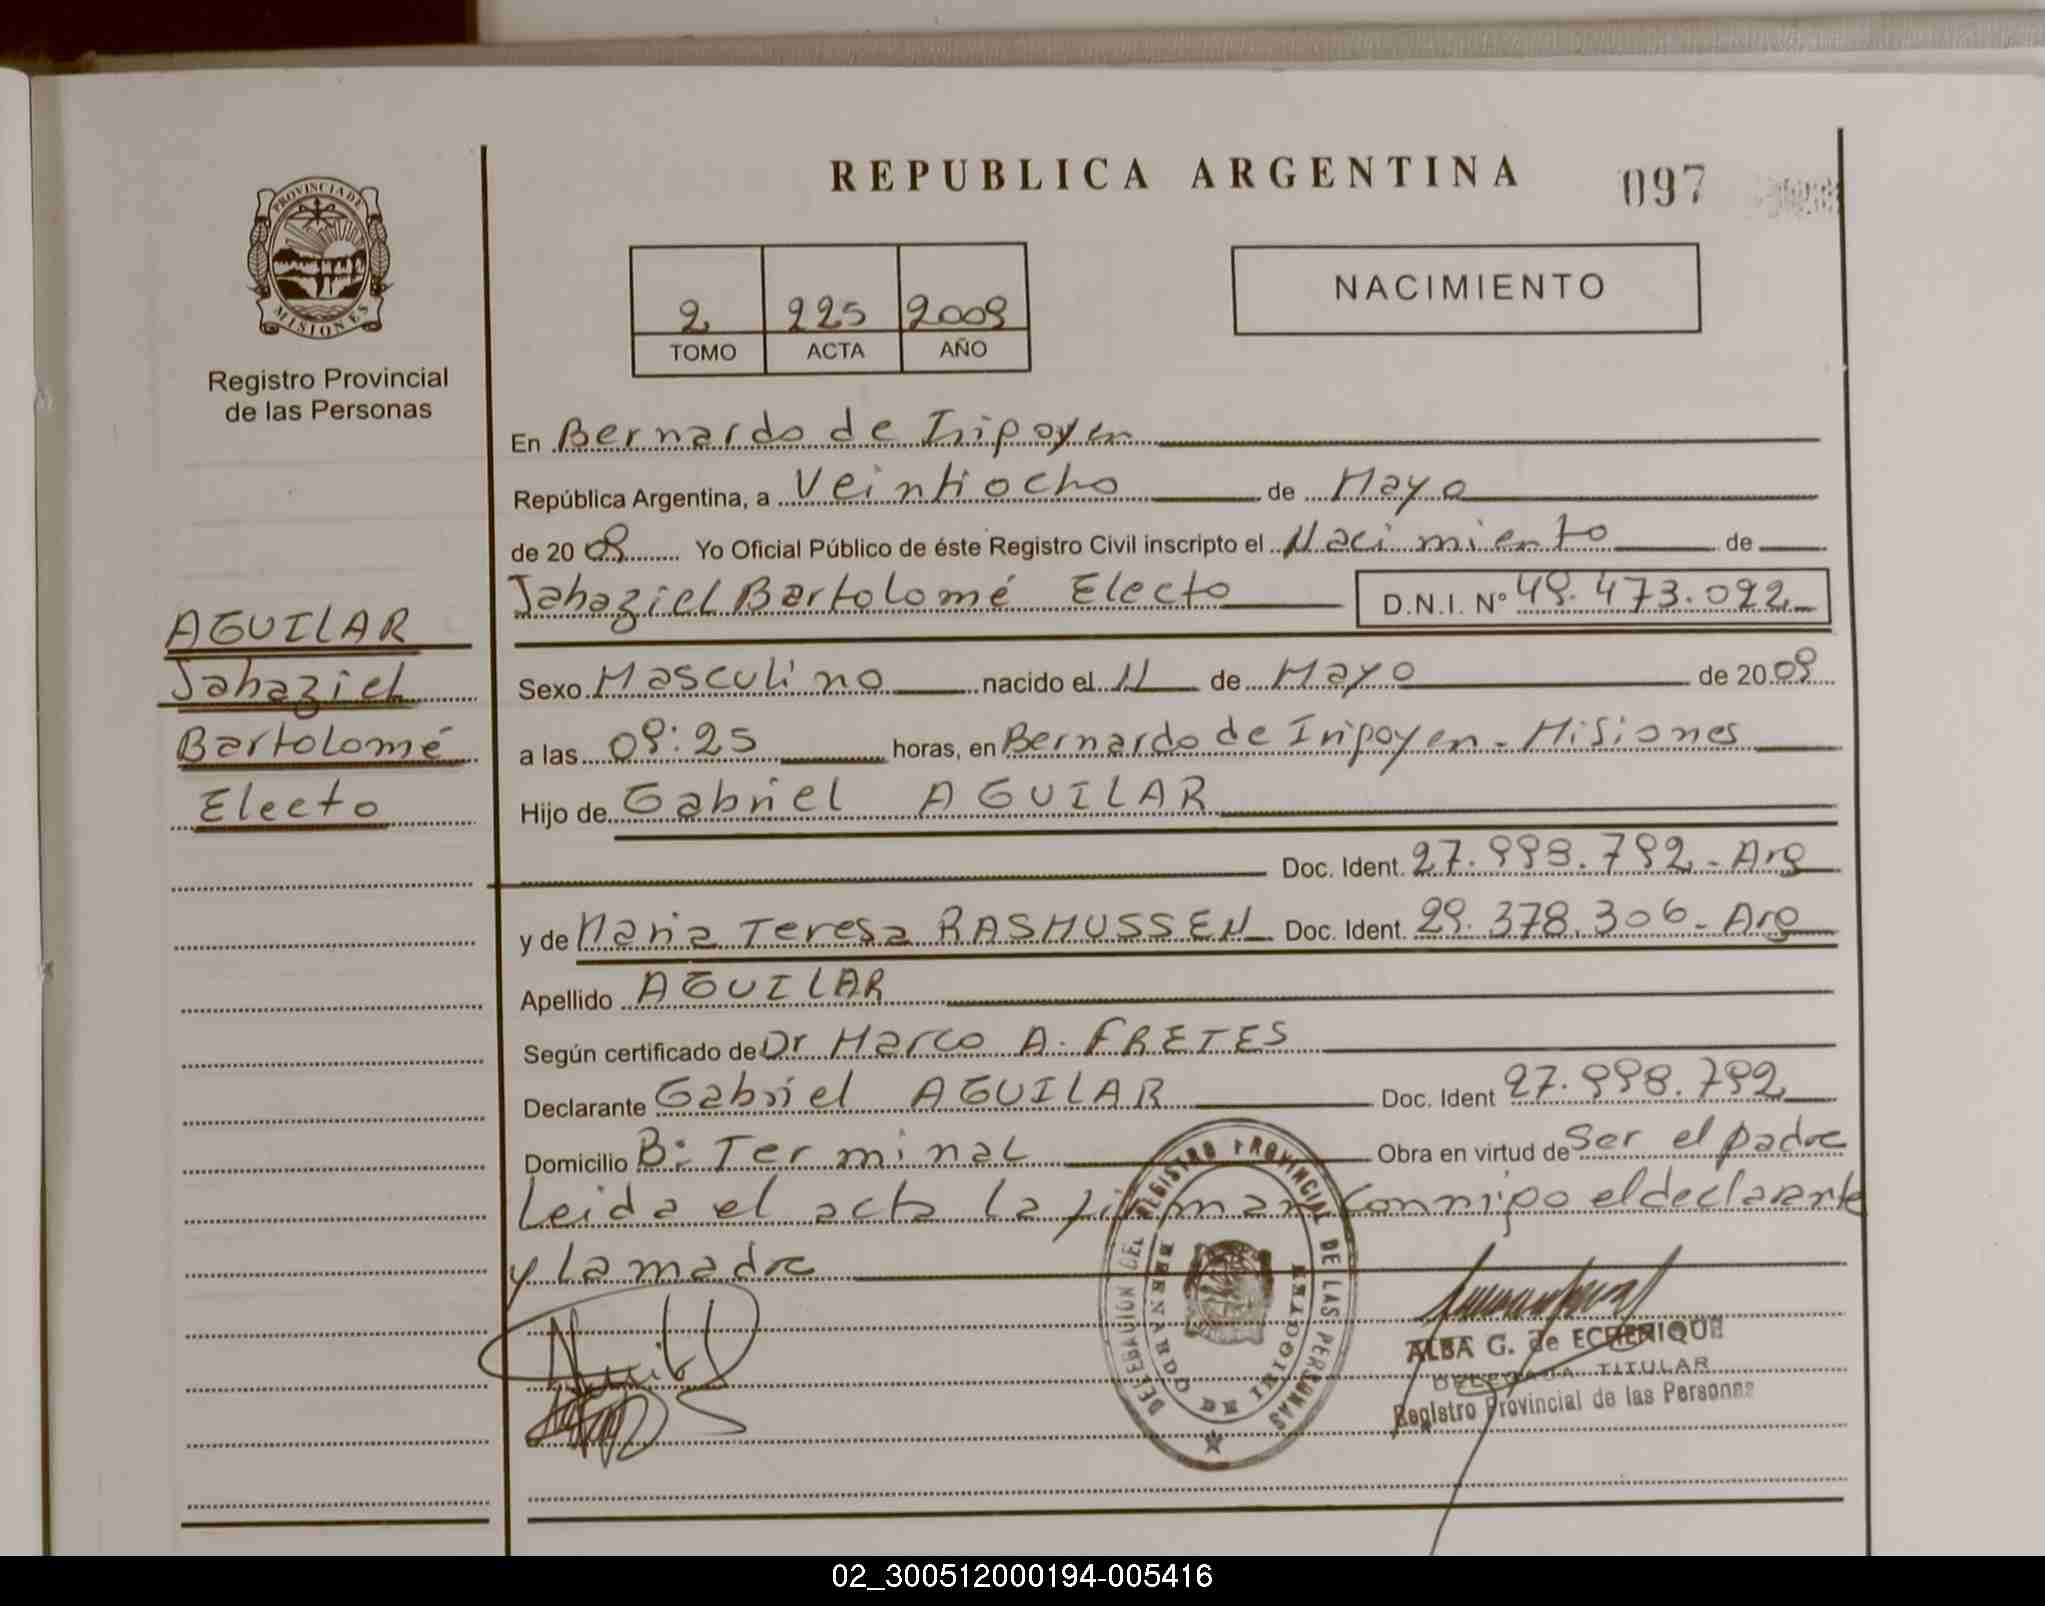 REPUBLICA ARGENTINA
097
PROVINCIA DE
MISIONES
Registro Provincial
de las Personas
2 225 2009
TOMO ACTA AÑO
NACIMIENTO
En Bernardo de Iripoyen
República Argentina, a Veintiocho de Mayo
de 20 09 Yo Oficial Público de éste Registro Civil inscripto el Nacimiento de
Jahaziel Bartolomé Electo D.N.I. Nº 49.473.092
AGUILAR
Jahaziel
Bartolomé
Electo
Sexo Masculino nacido el 11 de Mayo de 20 09
a las 09:25 horas, en Bernardo de Iripoyen - Misiones
Hijo de Gabriel AGUILAR
Doc. Ident. 27.998.792 - Arg
y de Maria Teresa RASMUSSEN Doc. Ident. 29.378.306 - Arg
Apellido AGUILAR
Según certificado de Dr Marco A. FRETES
Declarante Gabriel AGUILAR Doc. Ident 27.998.792
Domicilio Bº Terminal Obra en virtud de Ser el padre
Leida el acta la firman conmigo el declarante
y la madre
DELEGACION DEL REGISTRO PROVINCIAL DE LAS PERSONAS
BERNARDO DE IRIGOYEN
ALBA G. de ECHENIQUE
DELEGADA TITULAR
Registro Provincial de las Personas
02_300512000194-005416